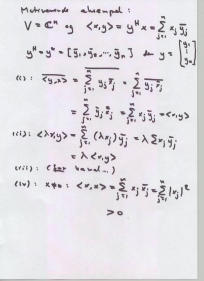 Motiverende eksempel:
V = ℂⁿ og <x,y> = yᴴx = Σⱼ₌₁ⁿ xⱼ ȳⱼ
yᴴ = y* = [ȳ₁, ȳ₂, ..., ȳₙ] for y = [y₁ ⋮ yₙ]
(i): \overline{<y,x>} = \overline{Σⱼ₌₁ⁿ yⱼ x̄ⱼ} = Σⱼ₌₁ⁿ \overline{yⱼ x̄ⱼ}
= Σⱼ₌₁ⁿ ȳⱼ xⱼ = Σⱼ₌₁ⁿ xⱼ ȳⱼ = <x,y>
(ii): <λx,y> = Σⱼ₌₁ⁿ (λxⱼ) ȳⱼ = λ Σ xⱼ ȳⱼ
= λ <x,y>
(iii):
(iv): x≠0: <x,x> = Σⱼ₌₁ⁿ xⱼ x̄ⱼ = Σⱼ₌₁ⁿ |xⱼ|²
> 0